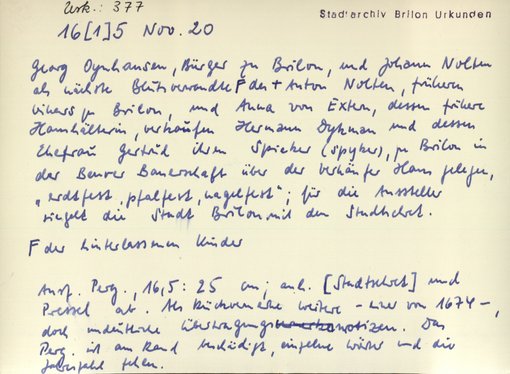 Urk.: 377
Stadtarchiv Brilon Urkunden
16[1]5 Nov. 20
Georg Oynhausen, Bürger zu Brilon, und Johann Nolten
als nächste Blutsverwandte F des + Anton Nolten, frühern
zu Brilon, und Anna von Extern, dessen frühere
Haushälterin, verkaufen Hermann Dykman und dessen
Ehefrau Gertrud ihren Speicher (Spyker), zu Brilon in
der Bauerschaft über der Verkäufer Haus gelegen,
"erdtfest, pfalfest, nagelfest"; für die Aussteller
siegelt die Stadt Brilon mit dem Stadtsekret.
F der hinterlassenen Kinder
Ausf. Perg., 16,5 : 25 cm; anh. [Stadtsekret] und
Pressel ab. Als Rückvermerke weitere - einer von 1674 -,
doch undeutliche Übertragungsnotizen. Das
Perg. ist am Rand beschädigt, einzelne Wörter und die
Jahreszahl fehlen.